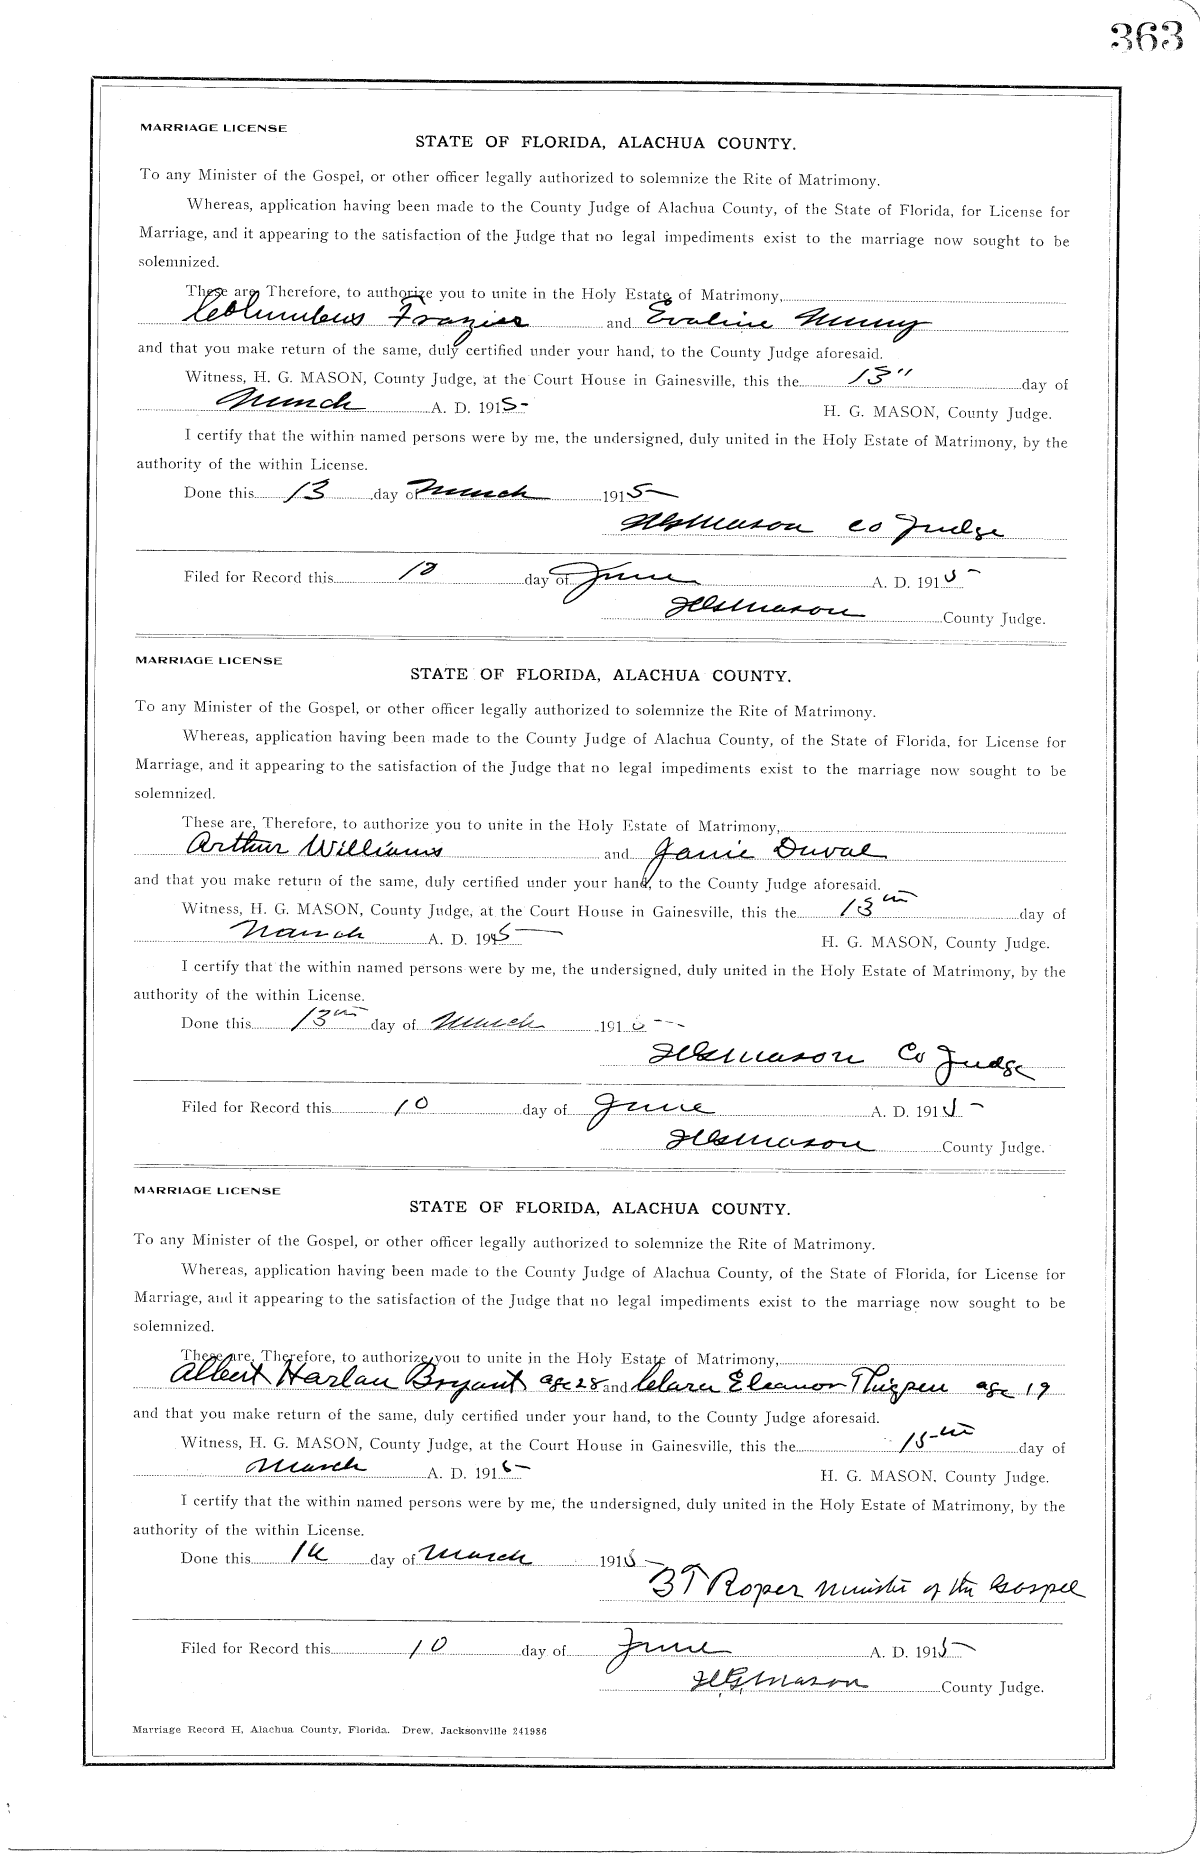 363
MARRIAGE LICENSE
STATE OF FLORIDA, ALACHUA COUNTY.
To any Minister of the Gospel, or other officer legally authorized to solemnize the Rite of Matrimony.
Whereas, application having been made to the County Judge of Alachua County, of the State of Florida, for License for
Marriage, and it appearing to the satisfaction of the Judge that no legal impediments exist to the marriage now sought to be
solemnized.
These are, Therefore, to authorize you to unite in the Holy Estate of Matrimony,
Columbus Frazier and Evaline
and that you make return of the same, duly certified under your hand, to the County Judge aforesaid.
Witness, H. G. MASON, County Judge, at the Court House in Gainesville, this the 13" day of
March A. D. 1915- H. G. MASON, County Judge.
I certify that the within named persons were by me, the undersigned, duly united in the Holy Estate of Matrimony, by the
authority of the within License.
Done this 13 day of March 1915-
HGMason Co Judge
Filed for Record this 10 day of June A. D. 1915-
HGMason County Judge.
MARRIAGE LICENSE
STATE OF FLORIDA, ALACHUA COUNTY.
To any Minister of the Gospel, or other officer legally authorized to solemnize the Rite of Matrimony.
Whereas, application having been made to the County Judge of Alachua County, of the State of Florida, for License for
Marriage, and it appearing to the satisfaction of the Judge that no legal impediments exist to the marriage now sought to be
solemnized.
These are, Therefore, to authorize you to unite in the Holy Estate of Matrimony,
Arthur Williams and Janie Duval
and that you make return of the same, duly certified under your hand, to the County Judge aforesaid.
Witness, H. G. MASON, County Judge, at the Court House in Gainesville, this the 13th day of
March A. D. 1915- H. G. MASON, County Judge.
I certify that the within named persons were by me, the undersigned, duly united in the Holy Estate of Matrimony, by the
authority of the within License.
Done this 13th day of March 1915-
HGMason Co Judge
Filed for Record this 10 day of June A. D. 1915-
HGMason County Judge.
MARRIAGE LICENSE
STATE OF FLORIDA, ALACHUA COUNTY.
To any Minister of the Gospel, or other officer legally authorized to solemnize the Rite of Matrimony.
Whereas, application having been made to the County Judge of Alachua County, of the State of Florida, for License for
Marriage, and it appearing to the satisfaction of the Judge that no legal impediments exist to the marriage now sought to be
solemnized.
These are, Therefore, to authorize you to unite in the Holy Estate of Matrimony,
Albert Harlan Bryant age 28 and Clara Eleanor Thigpen age 19
and that you make return of the same, duly certified under your hand, to the County Judge aforesaid.
Witness, H. G. MASON, County Judge, at the Court House in Gainesville, this the 15th day of
March A. D. 1915- H. G. MASON, County Judge.
I certify that the within named persons were by me, the undersigned, duly united in the Holy Estate of Matrimony, by the
authority of the within License.
Done this day of March 1915-
BT Roper Minister of the Gospel
Filed for Record this 10 day of June A. D. 1915-
HGMason County Judge.
Marriage Record H, Alachua County, Florida. Drew, Jacksonville 241986